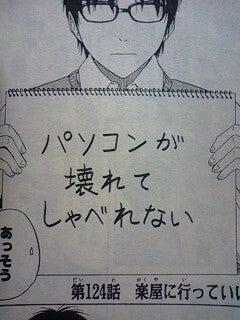 パソコンが
壊れて
しゃべれない
あっそう
第124話 楽屋に行っていい